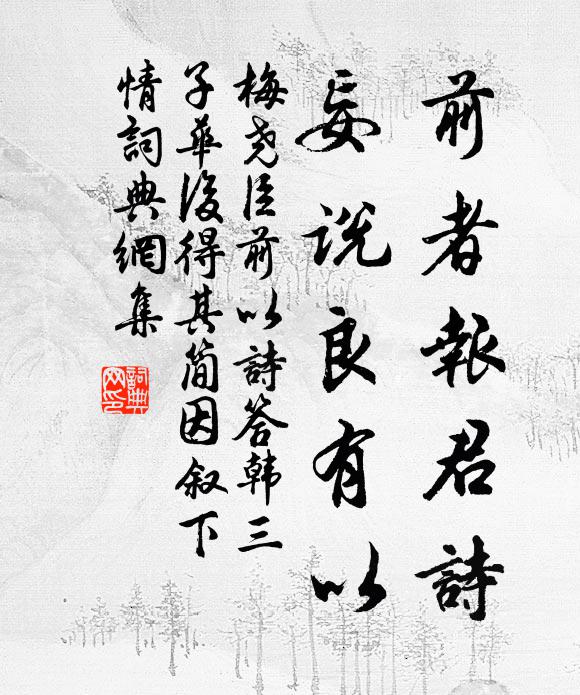 前者報君詩
妄說良有以
梅尧臣前以詩答韩三
子華後得其简因叙下
情詞典網集
詞典
网印